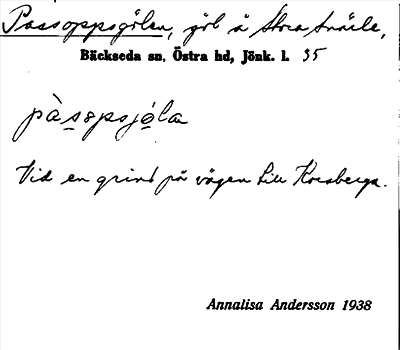 Passoppsgölen, göl å Stora Snärle,
Bäckseda sn, Östra hd, Jönk. l. 35
pàsopsjö̀la
Vid en grind på vägen till Korsberga.
Annalisa Andersson 1938